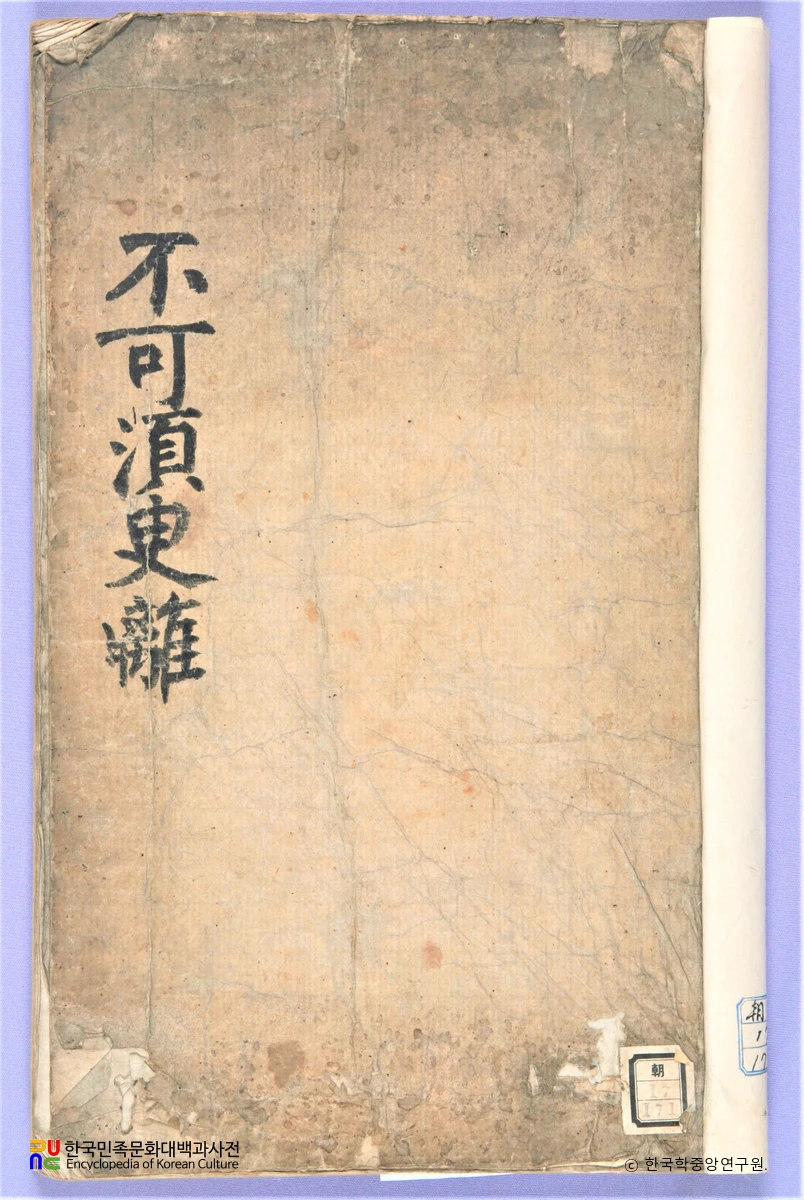 不可湏臾離
朝
17
171
朝
한국민족문화대백과사전
Encyclopedia of Korean Culture
© 한국학중앙연구원.